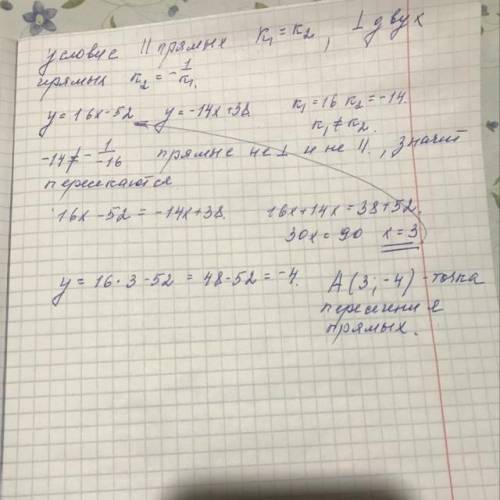 условие || прямых к₁ = к₂ , ⊥ двух
прямых к₂ = -1/к₁.
y = 16x - 52 y = -14x + 38. к₁ = 16 к₂ = -14.
к₁ ≠ к₂.
-14 ≠ -1/-16 прямые не ⊥ и не ||, значит
пересекаются
16x - 52 = -14x + 38. 16x + 14x = 38 + 52.
30x = 90 x = 3
y = 16 · 3 - 52 = 48 - 52 = -4. A(3; -4) - точка
пересечения
прямых.